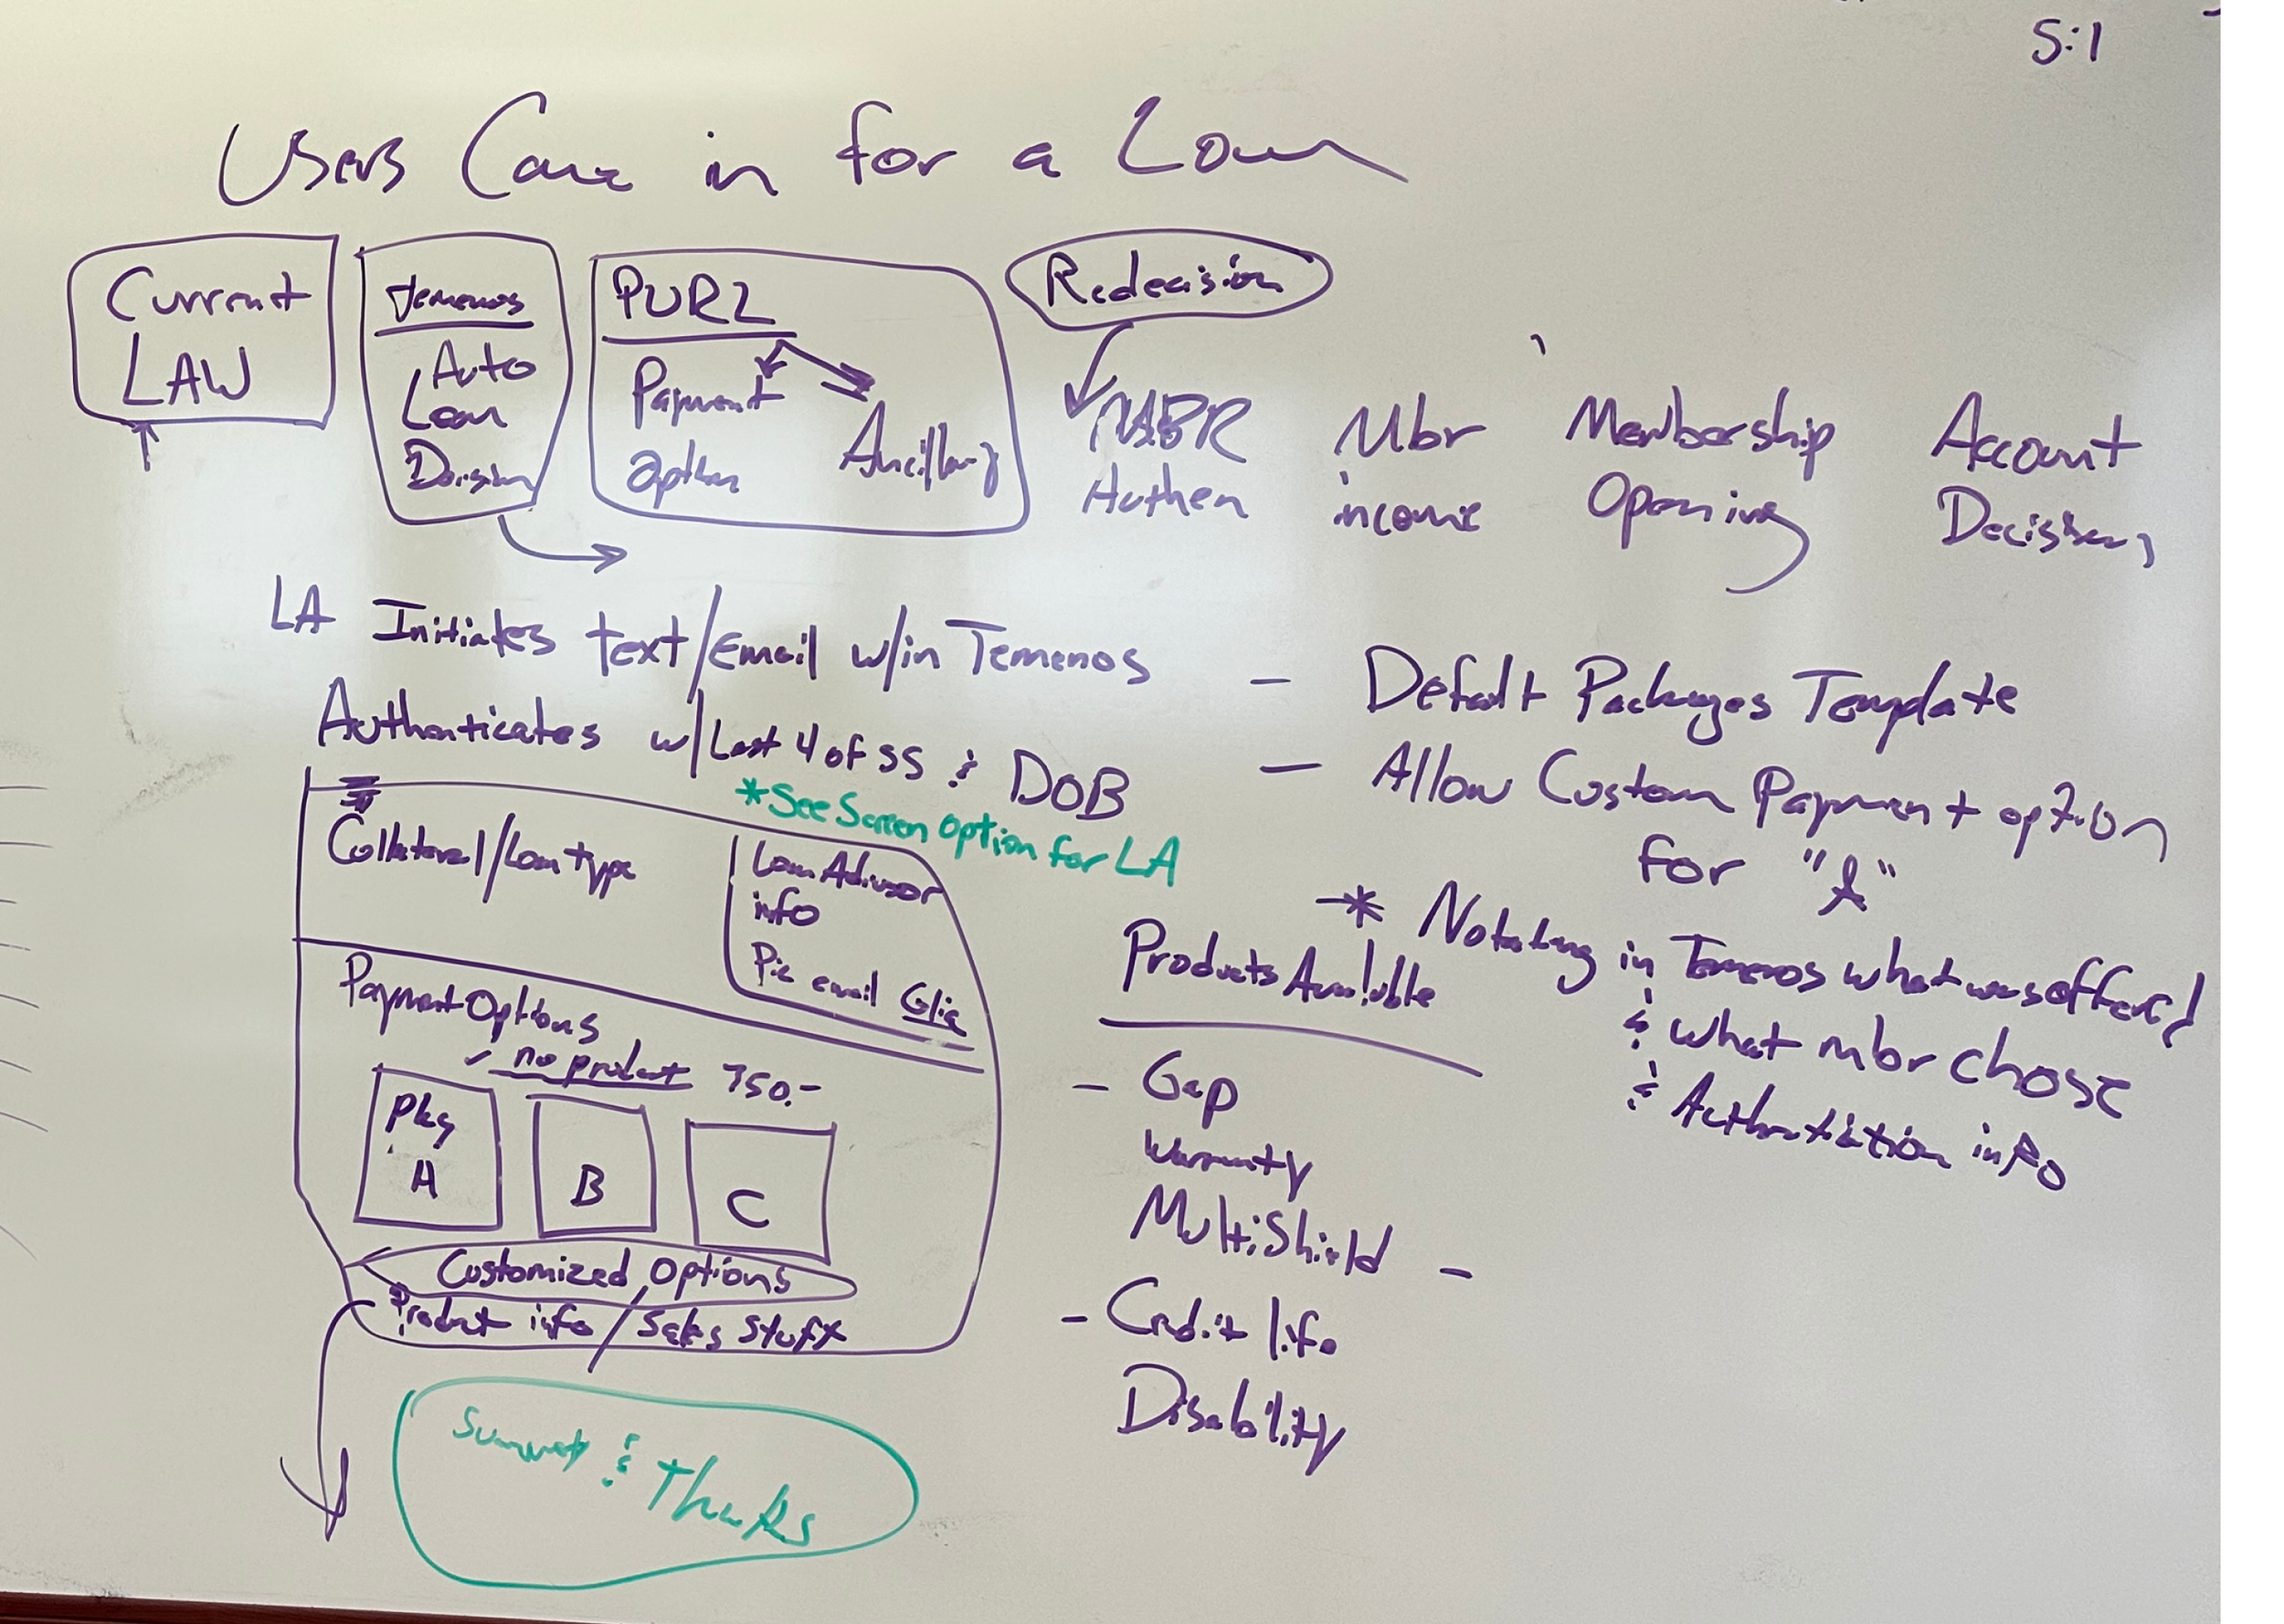 5:1
Users Came in for a Loan
Current
LAW
Temenos
Auto
Loan
Decision
PURL
Payment
Option
Ancillary
Redecision
MBR
Authen
Mbr
income
Membership
Opening
Account
Decision
LA Initiates text/Email w/in Temenos
Authenticates w/Last 4 of SS & DOB
*See Screen Option for LA
Collateral/Loan type
Loan Advisor
info
Pic email Glia
Payment Options
✓ no product 750.-
Pkg
A
B
C
Customized Options
Product info / Sales Stuff
Summary & Thanks
- Default Packages Template
- Allow Custom Payment option
for "A"
* Notating in Temenos what was offered
& what mbr chose
& Authentication info
Products Available
- Gap
Warranty
MultiShield -
- Credit life
Disability